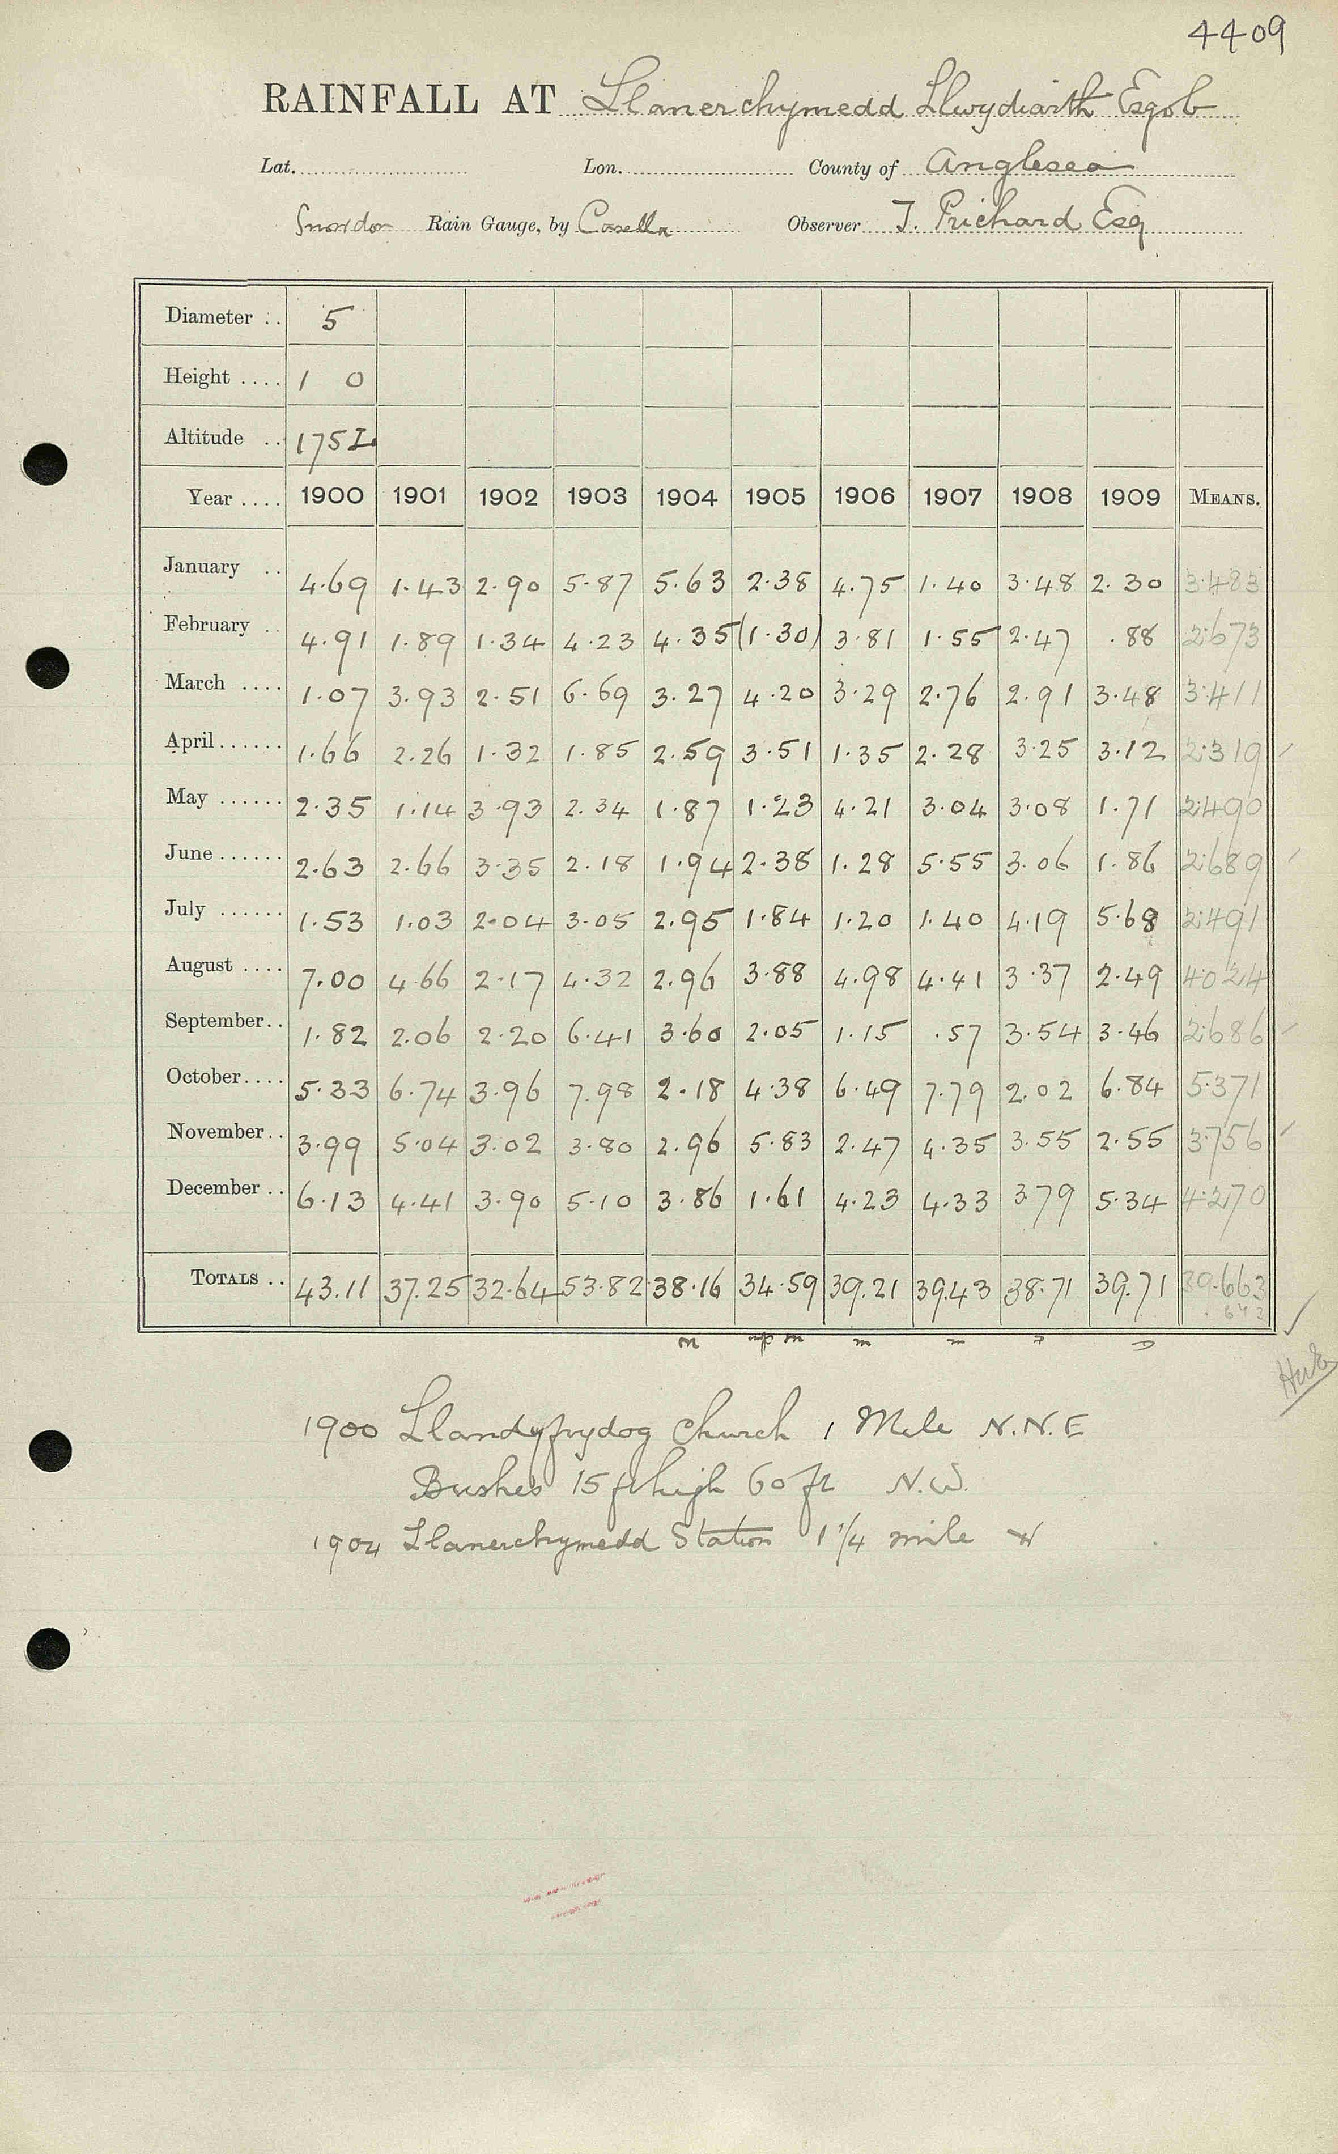 4409
RAINFALL AT Llanerchymedd Llwydiarth Esgob
Lat. Lon. County of Anglesea
Snowdon Rain Gauge, by Casella Observer J. Prichard Esq
Diameter .. 5
Height .... 1 0
Altitude .. 175
Year .... 1900 1901 1902 1903 1904 1905 1906 1907 1908 1909 MEANS.
January .. 4.69 1.43 2.90 5.87 5.63 2.38 4.75 1.40 3.48 2.30 3.483
February .. 4.91 1.89 1.34 4.23 4.35 (1.30) 3.81 1.55 2.47 .88 2.673
March .... 1.07 3.93 2.51 6.69 3.27 4.20 3.29 2.76 2.91 3.48 3.411
April ...... 1.66 2.26 1.32 1.85 2.59 3.51 1.35 2.28 3.25 3.12 2.319
May ...... 2.35 1.14 3.93 2.34 1.87 1.23 4.21 3.04 3.08 1.71 2.490
June ...... 2.63 2.66 3.35 2.18 1.94 2.38 1.28 5.55 3.06 1.86 2.689
July ...... 1.53 1.03 2.04 3.05 2.95 1.84 1.20 1.40 4.19 5.68 2.491
August .... 7.00 4.66 2.17 4.32 2.96 3.88 4.98 4.41 3.37 2.49 4.024
September .. 1.82 2.06 2.20 6.41 3.60 2.05 1.15 .57 3.54 3.46 2.686
October .... 5.33 6.74 3.96 7.98 2.18 4.38 6.49 7.79 2.02 6.84 5.371
November .. 3.99 5.04 3.02 3.80 2.96 5.83 2.47 4.35 3.55 2.55 3.756
December .. 6.13 4.41 3.90 5.10 3.86 1.61 4.23 4.33 3.79 5.34 4.270
TOTALS .. 43.11 37.25 32.64 53.82 38.16 34.59 39.21 39.43 38.71 39.71 39.663
.643
1900 Llandyfrydog Church 1 Mile N.N.E
Bushes 15 ft high 60 ft N.W.
1904 Llanerchymedd Station 1 1/4 mile W